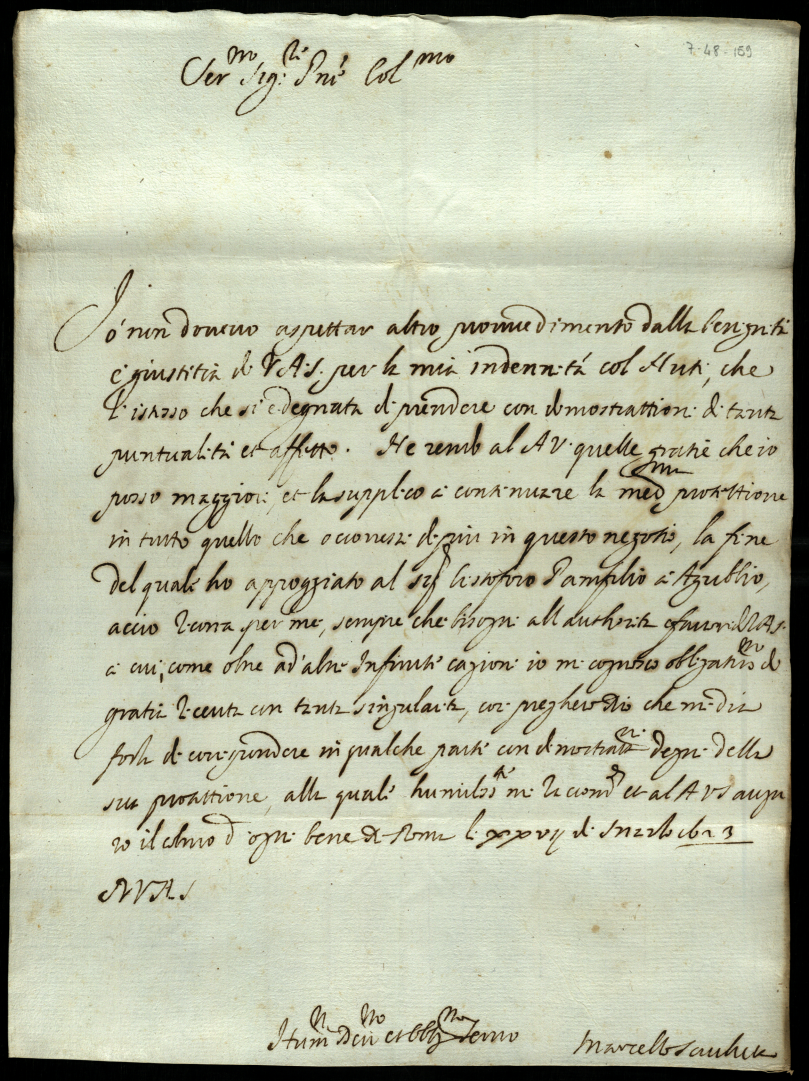 7-48-159
Ser.mo Sig.re P.ne Col.mo
Io non dovevo aspettar altro provvedimento dalla benignità
e giustitia di V.A.S. per la mia indennità col Muti, che
l'istesso che si è degnata di prendere con demostrattione di tanta
puntualità et affetto. Ne rendo al A.V. quelle gratie che io
posso maggiori, et la supplico a continuare la med.ma protettione
in tutto quello che occorresse di più in questo negotio, la fine
del quale ho appoggiato al Sig. Cristoforo Pamfilio a Agubbio,
acciò ricorra per me, sempre che bisogni all'authorità e favor di V.A.S.
a cui, come oltre ad altre infinite cagioni io mi cognosco obligatiss.mo di
gratia riceuta con tanta singularità, così pregherò Dio che mi dia
forza di corrispondere in qualche parte con demostrat.ni degne della
sua protettione, alla quale humiliss.te mi racom.do et al A.V.S. augu
ro il colmo d'ogni bene di Roma li xxvij di
D.V.A.S.
Hum.mo Dev.mo et obblig.mo servo
Marcello Sacchetti